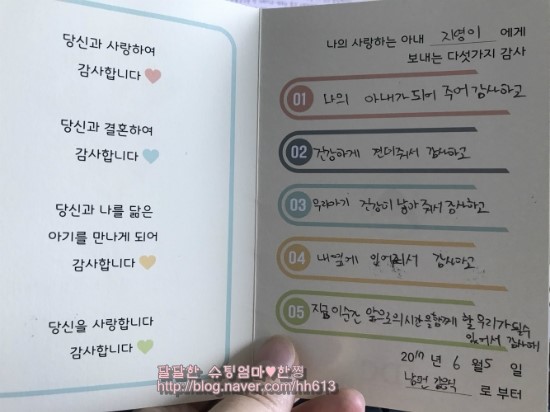 당신과 사랑하여
감사합니다
당신과 결혼하여
감사합니다
당신과 나를 닮은
아기를 만나게 되어
감사합니다
당신을 사랑합니다
감사합니다
나의 사랑하는 아내 지영이 에게
보내는 다섯가지 감사
01 나의 아내가 되어 주어 감사하고
02 건강하게 견뎌줘서 감사하고
03 우리아기 건강히 낳아 줘서 감사하고
04 내옆에 있어줘서 감사하고
05 지금이순간 앞으로의시간을함께 할 우리가 될수
있어서 감사해
2017 년 6 월 5 일
남편 로 부터
달달한 슈퉁엄마♥한찡
http://blog.naver.com/hh613